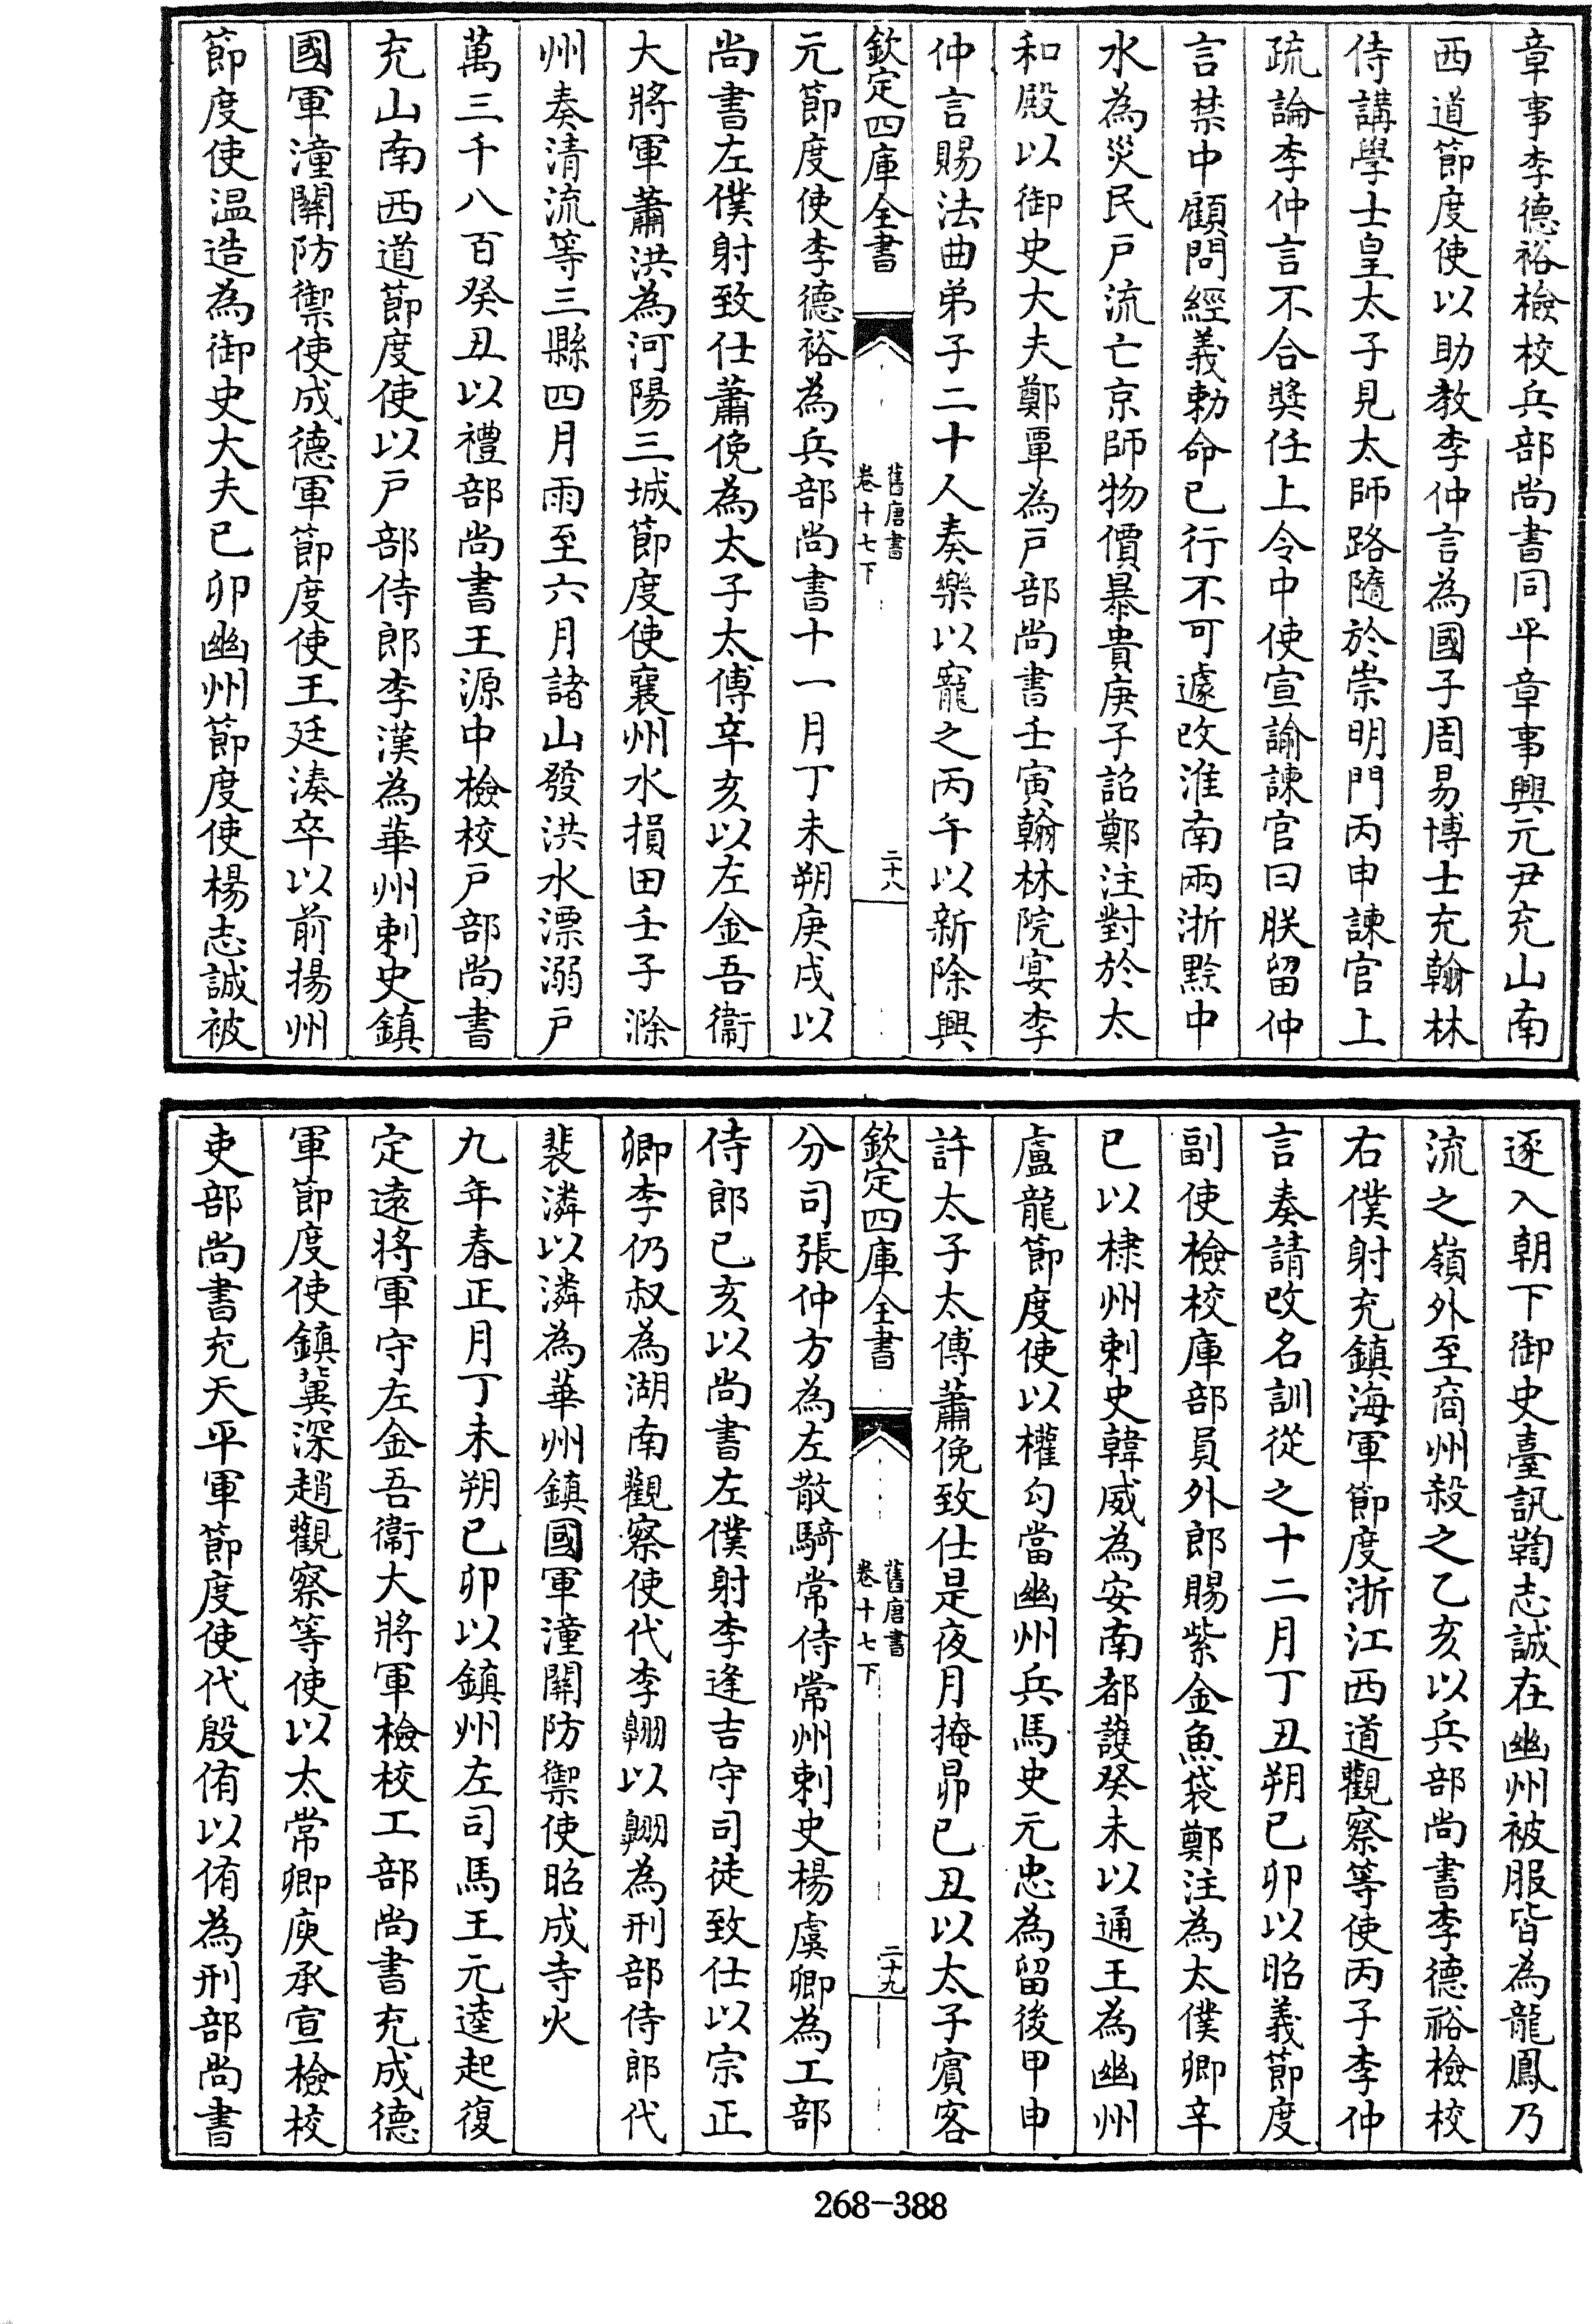 章事李德裕檢校兵部尚書同平章事興元尹充山南
西道節度使以助教李仲言為國子周易博士充翰林
侍講學士皇太子見太師路隨於崇明門丙申諫官上
疏論李仲言不合奬任上令中使宣諭諫官曰朕留仲
言禁中顧問經義勅命已行不可遽改淮南兩浙黔中
水為災民戶流亡京師物價暴貴庚子詔鄭注對於太
和殿以御史大夫鄭覃為戶部尚書壬寅翰林院宴李
仲言賜法曲弟子二十人奏樂以寵之丙午以新除興
欽定四庫全書
舊唐書
卷十七下
二十八
元節度使李德裕為兵部尚書十一月丁未朔庚戌以
尚書左僕射致仕蕭俛為太子太傅辛亥以左金吾衞
大將軍蕭洪為河陽三城節度使襄州水損田壬子滁
州奏清流等三縣四月雨至六月諸山發洪水漂溺戶
萬三千八百癸丑以禮部尚書王源中檢校戶部尚書
充山南西道節度使以戶部侍郎李漢為華州刺史鎮
國軍潼關防禦使成德軍節度使王廷湊卒以前揚州
節度使温造為御史大夫已卯幽州節度使楊志誠被
逐入朝下御史臺訊鞫志誠在幽州被服皆為龍鳳乃
流之嶺外至商州殺之乙亥以兵部尚書李德裕檢校
右僕射充鎮海軍節度浙江西道觀察等使丙子李仲
言奏請改名訓從之十二月丁丑朔已卯以昭義節度
副使檢校庫部員外郎賜紫金魚袋鄭注為太僕卿辛
已以棣州刺史韓威為安南都護癸未以通王為幽州
盧龍節度使以權勾當幽州兵馬史元忠為留後甲申
許太子太傅蕭俛致仕是夜月掩昴已丑以太子賓客
欽定四庫全書
舊唐書
卷十七下
二十九
分司張仲方為左散騎常侍常州刺史楊虞卿為工部
侍郎已亥以尚書左僕射李逢吉守司徒致仕以宗正
卿李仍叔為湖南觀察使代李翺以翺為刑部侍郎代
裴潾以潾為華州鎮國軍潼關防禦使昭成寺火
九年春正月丁未朔已卯以鎮州左司馬王元逵起復
定遠將軍守左金吾衞大將軍檢校工部尚書充成德
軍節度使鎮冀深趙觀察等使以太常卿庾承宣檢校
吏部尚書充天平軍節度使代殷侑以侑為刑部尚書
268-388